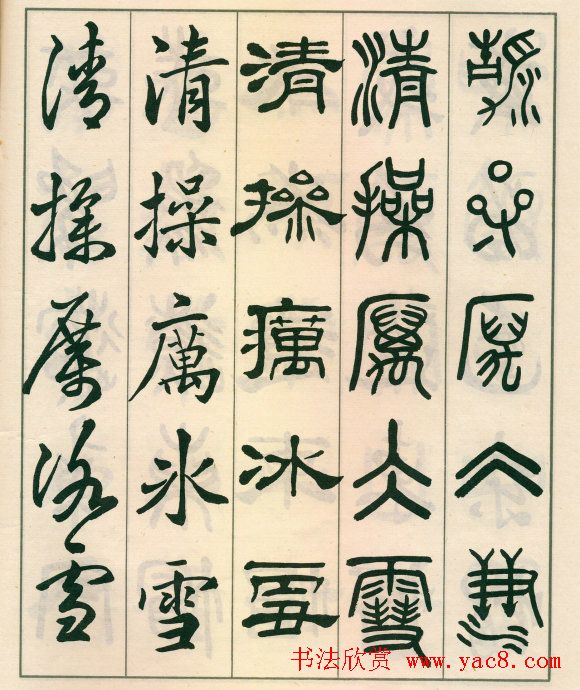 清操厲冰雪
清操厲冰雪
清操厲冰雪
清操厲冰雪
清操厲冰雪
书法欣赏 www.yac8.com